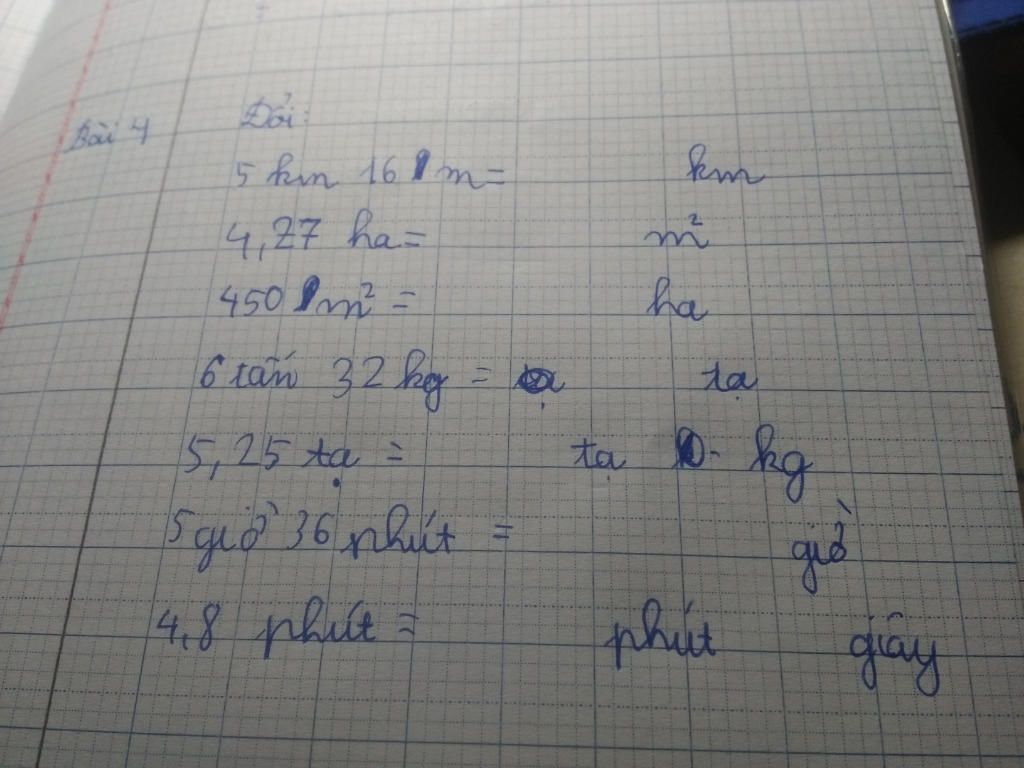 Bài 4 Đổi:
5 km 16 m = km
4,27 ha = m²
450 m² = ha
6 tấn 32 kg = tạ
5,25 tạ = tạ kg
5 giờ 36 phút = giờ
4,8 phút = phút giây